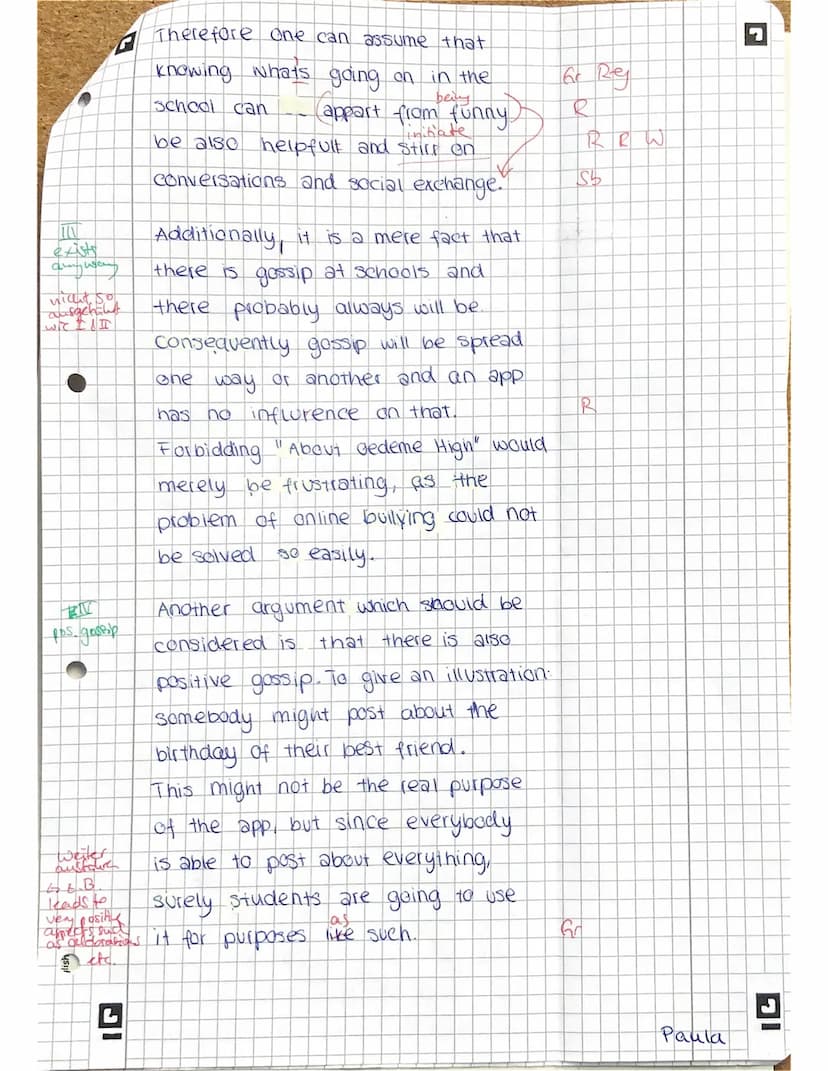 Therefore one can assume that
knowing what's going on in the
Gr Reg
school can (appart from being funny)
R
be also helpfull and stirr on
initiate
R R W
conversations and social exchange.
Sb
III
exists
anyway
nicht so
ausgebaut
wie I & II
Additionally, it is a mere fact that
there is gossip at schools and
there probably always will be.
Consequently gossip will be spread
one way or another and an app
has no influrence on that.
R
Forbidding "About Oedeme High" would
merely be frustrating, as the
problem of online bullying could not
be solved so easily.
IV
pos. gossip
Another argument which should be
considered is that there is also
positive gossip. To give an illustration:
somebody might post about the
birthday of their best friend.
This might not be the real purpose
of the app, but since everybody
is able to post about everything,
surely students are going to use
it for purposes like such.
as
Gr
weiter
z.B.
leads to
very positive
aspects such
as celebrations
etc.
lish
Paula